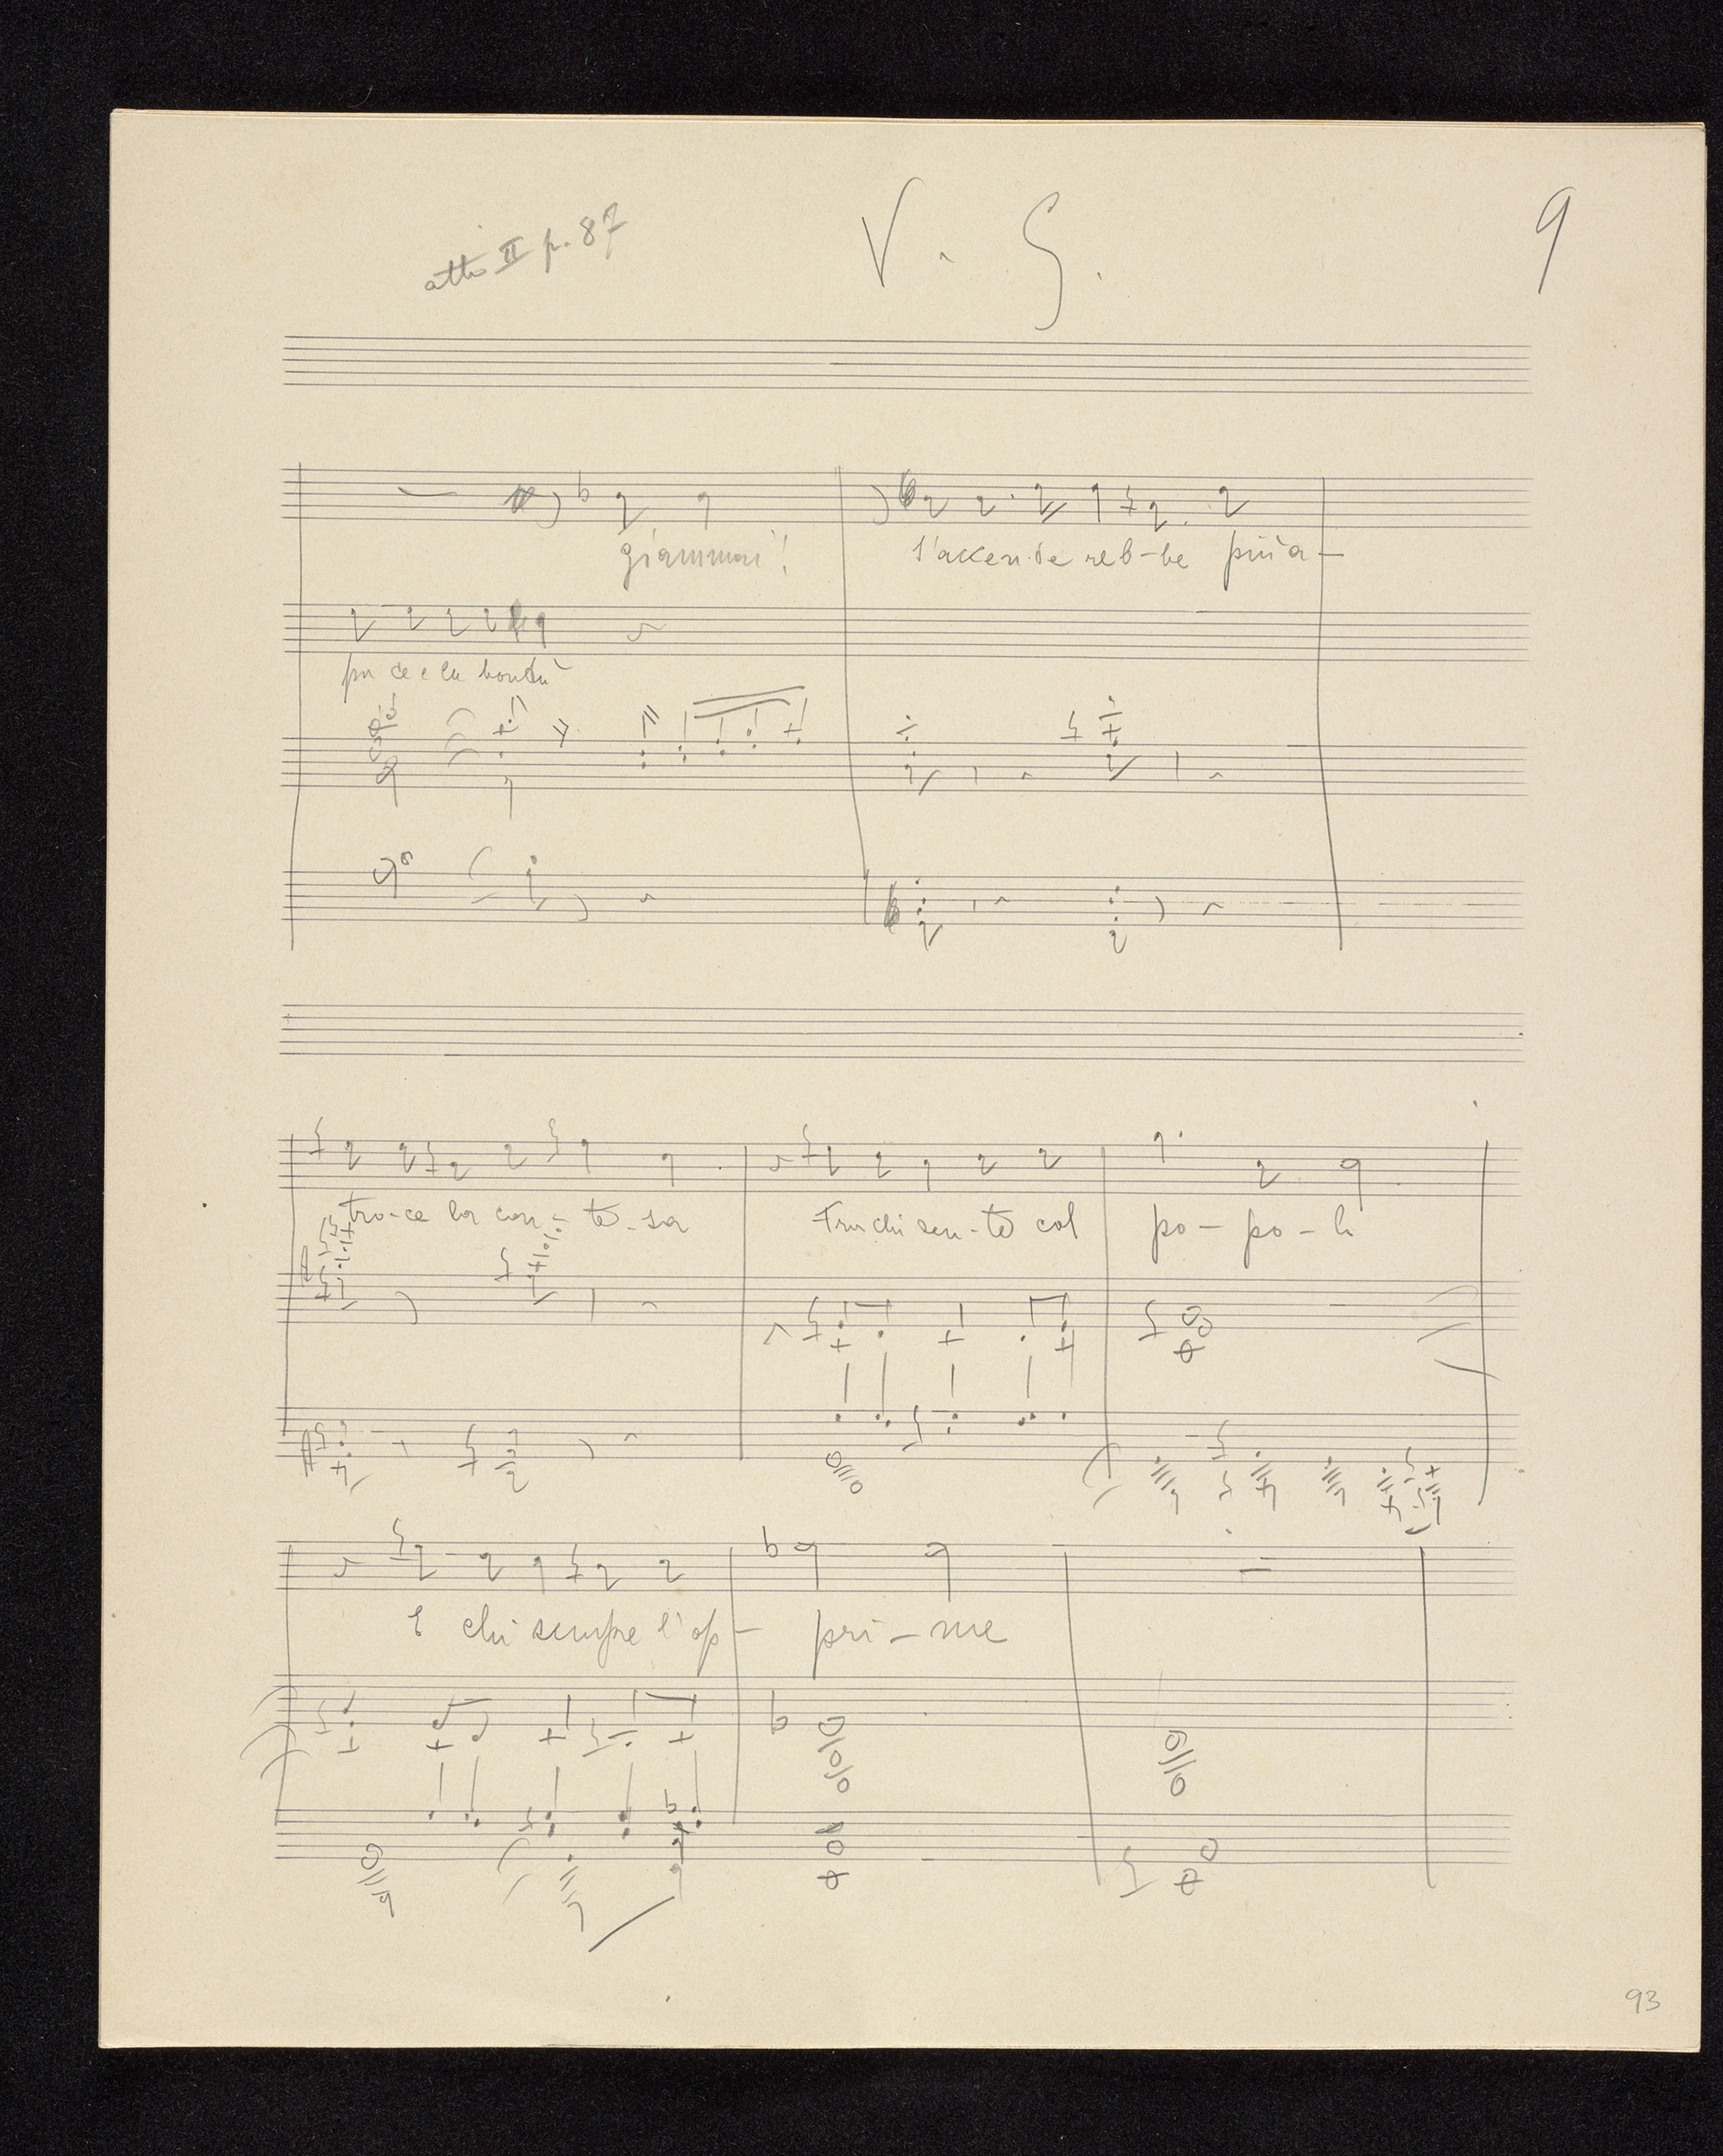 atto II p. 87
V. G.
9
giammai!
s'accen-de reb-be più a-
la bontà
tro-ce la con-te-sa
Fra chi sen-te col
po-po-lo
E chi sempre l'op-
pri-me
93